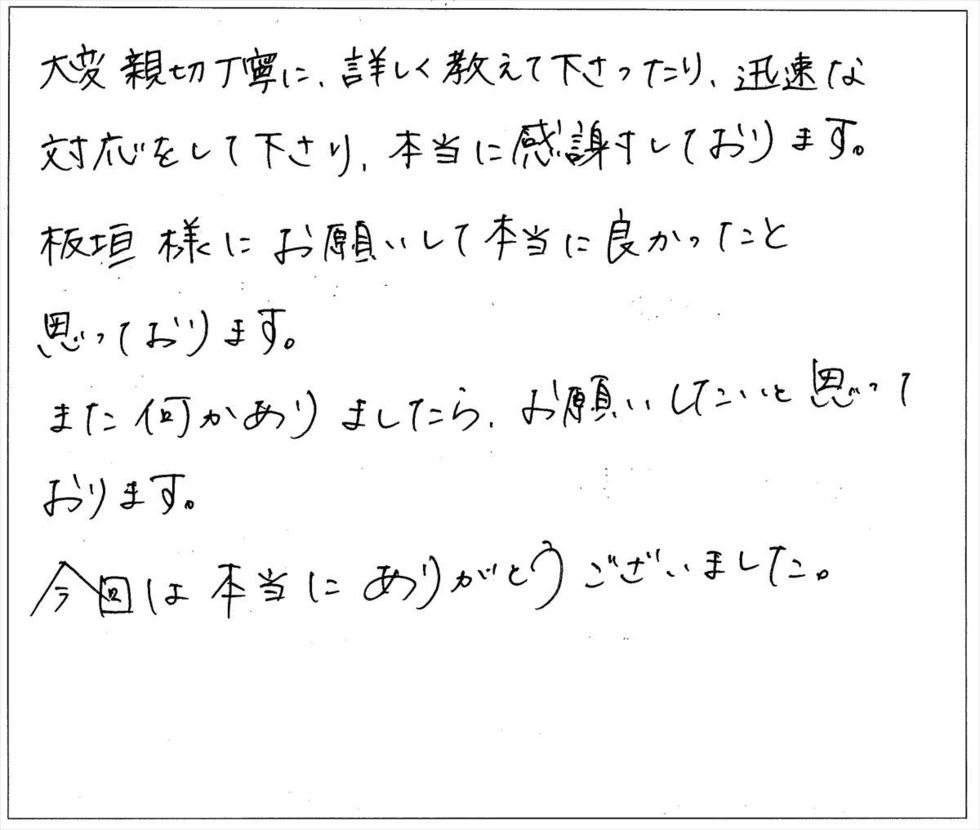 大変親切丁寧に、詳しく教えて下さったり、迅速な
対応をして下さり、本当に感謝しております。
板垣様にお願いして本当に良かったと
思っております。
また何かありましたら、お願いしたいと思って
おります。
今回は本当にありがとうございました。